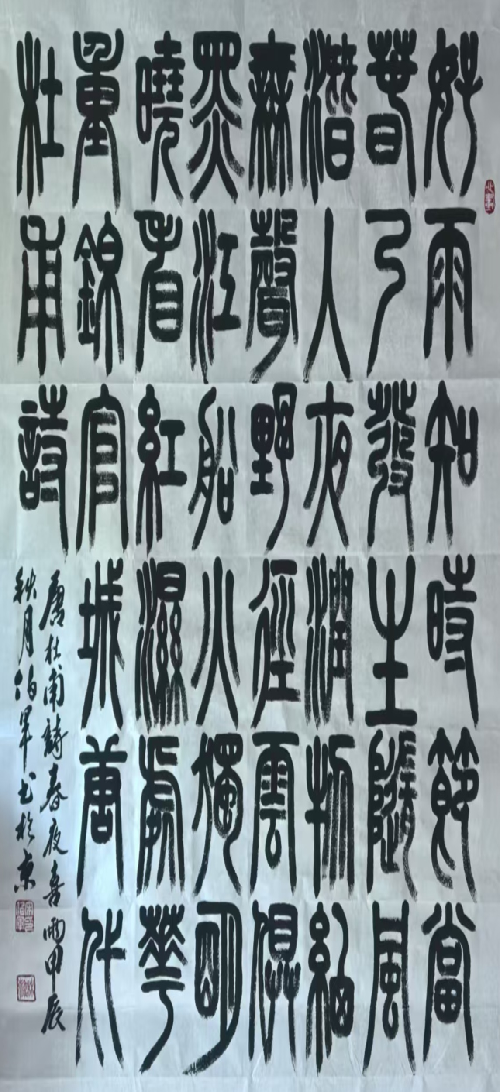 好雨知時節當
春乃發生隨風
潛入夜潤物細
無聲野徑雲俱
黑江船火獨明
曉看紅濕處華
重錦官城唐代
杜甫詩
唐杜甫詩春夜喜雨甲辰
秋月伯軍书於京